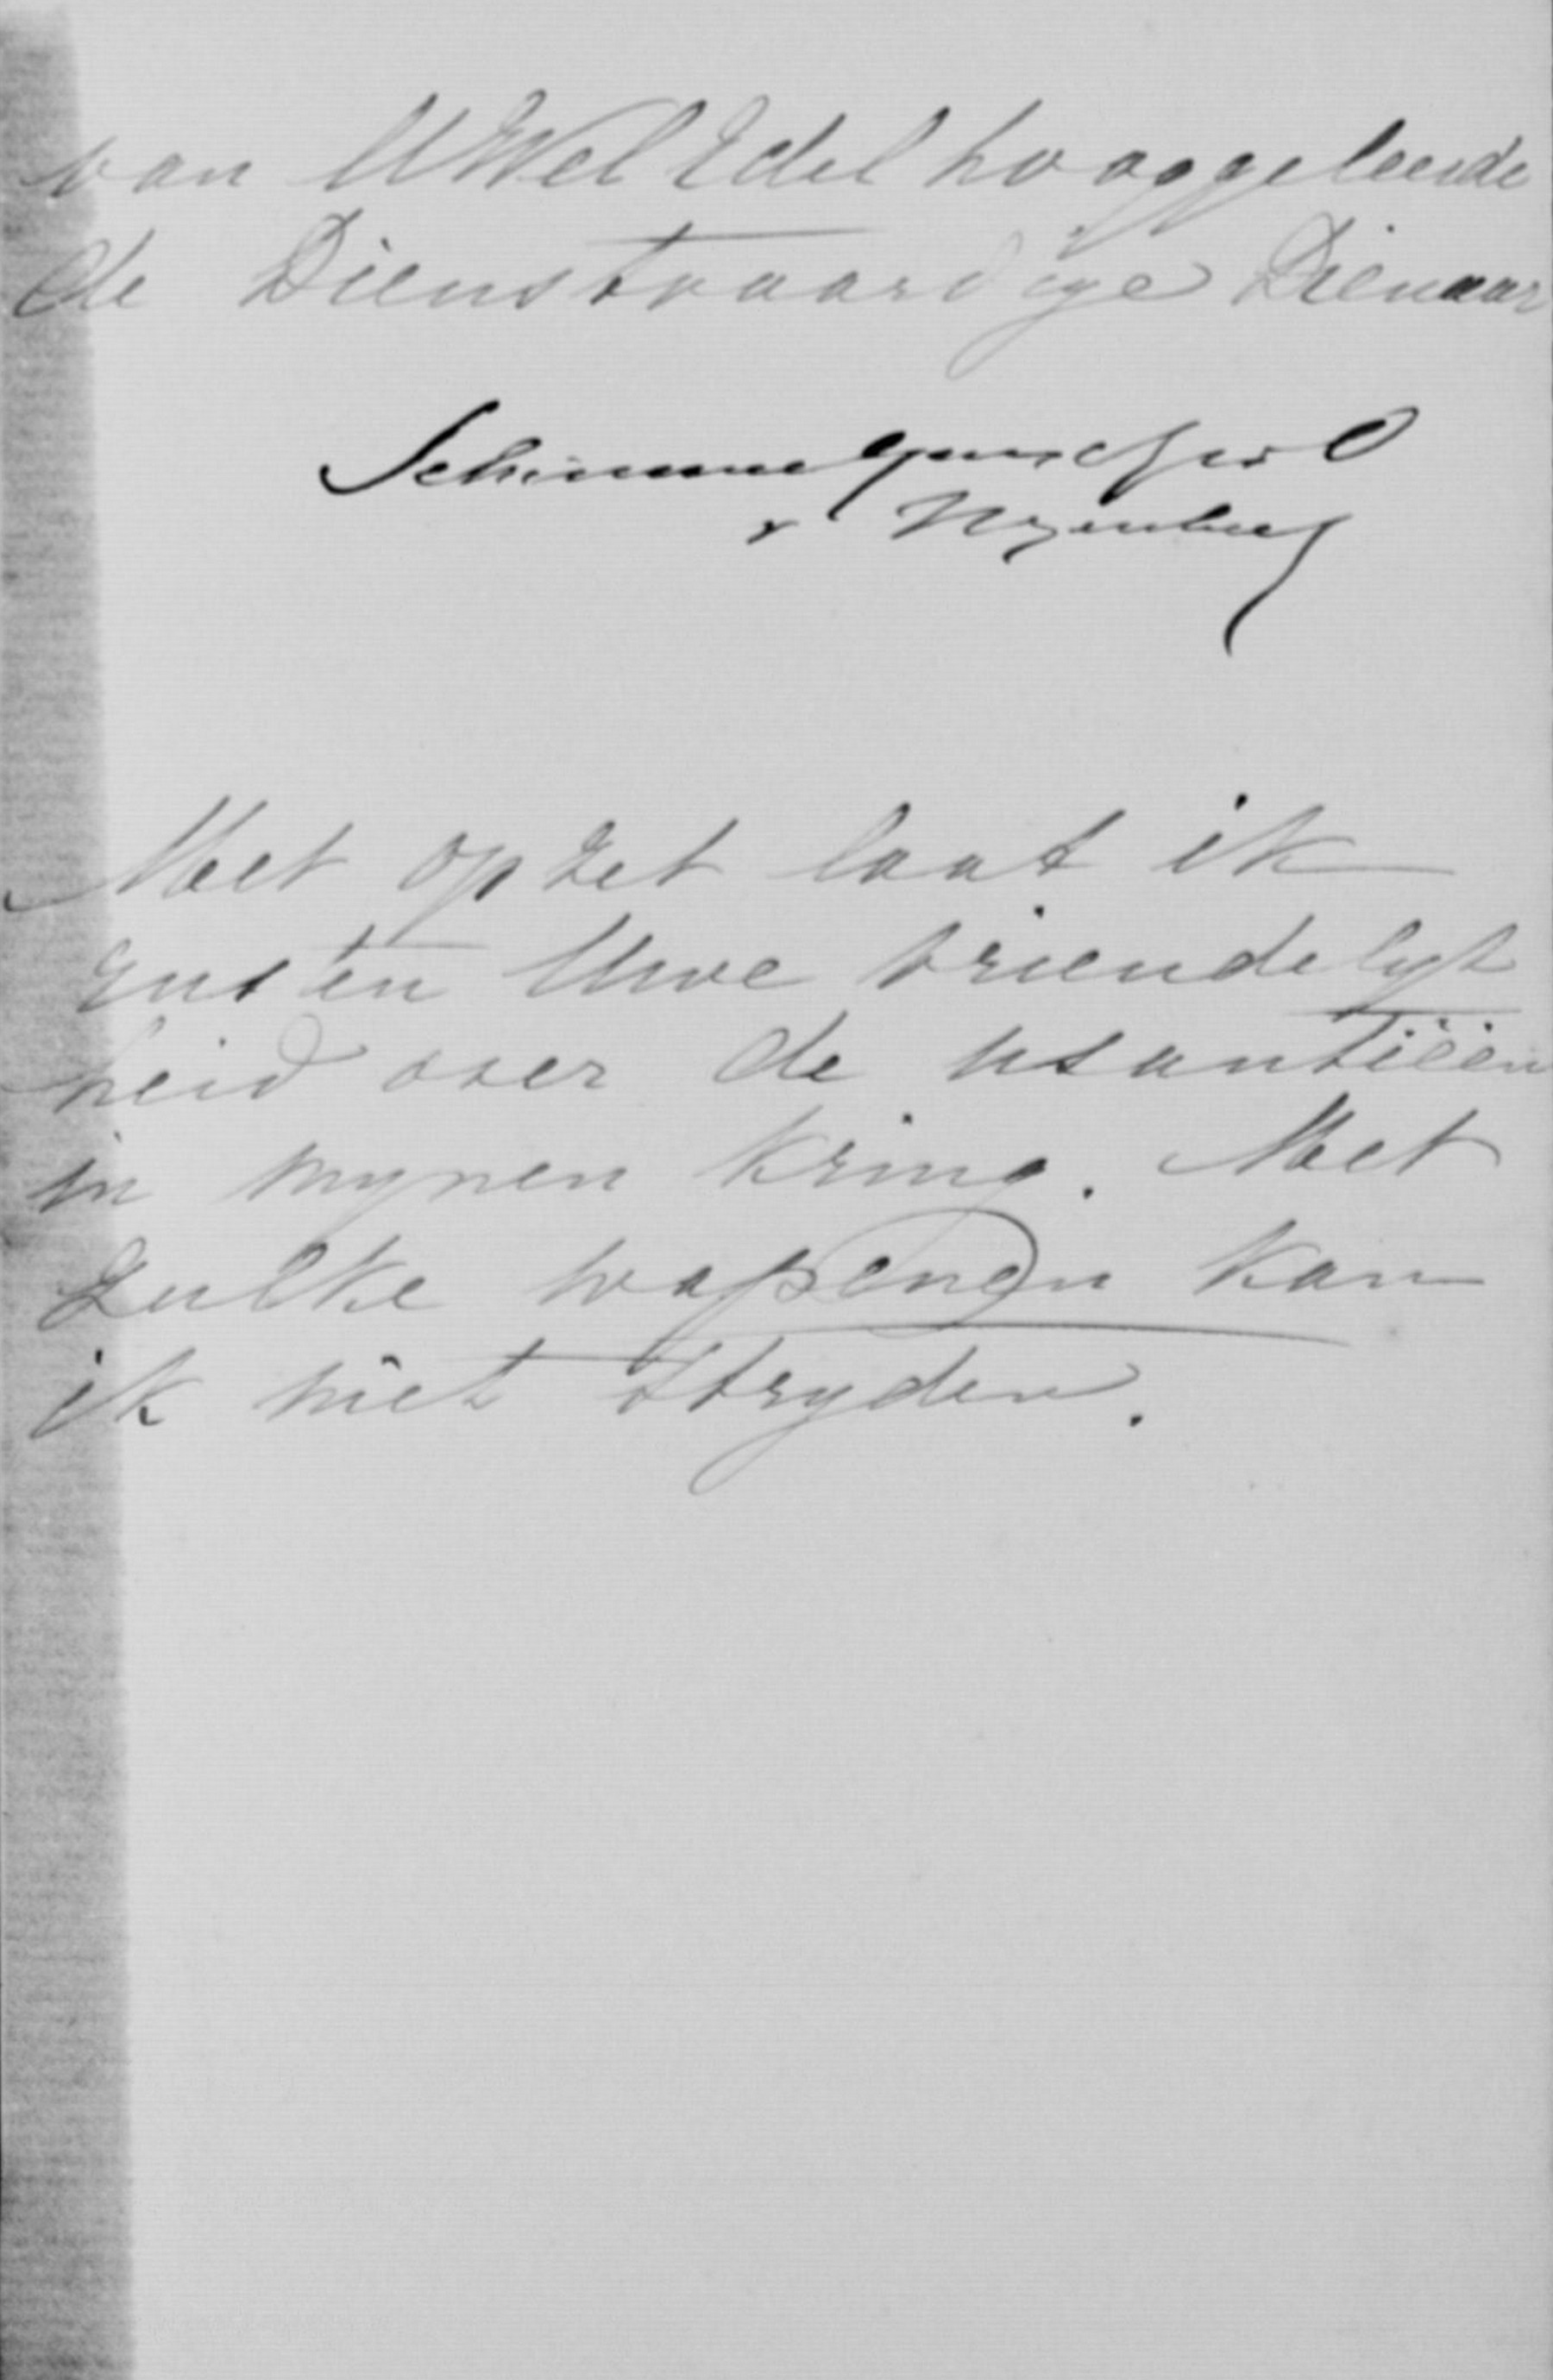 van UWelEdelhooggeleerde
de Dienstvaardige Dienaar
Schimmelpenninck
v Nyenhuis
Met opzet laat ik
rusten Uwe vriendelyk
heid over de usantiëen
in mynen kring. Met
zulke wapenen kan
ik niet stryden.